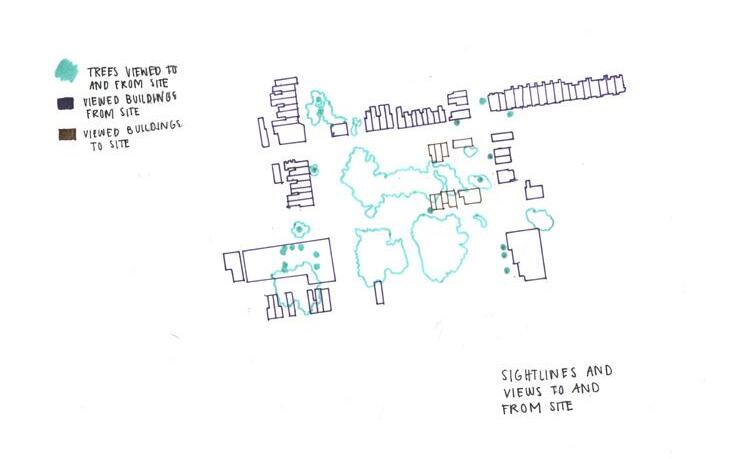 TREES VIEWED TO
AND FROM SITE
VIEWED BUILDINGS
FROM SITE
VIEWED BUILDINGS
TO SITE
SIGHTLINES AND
VIEWS TO AND
FROM SITE